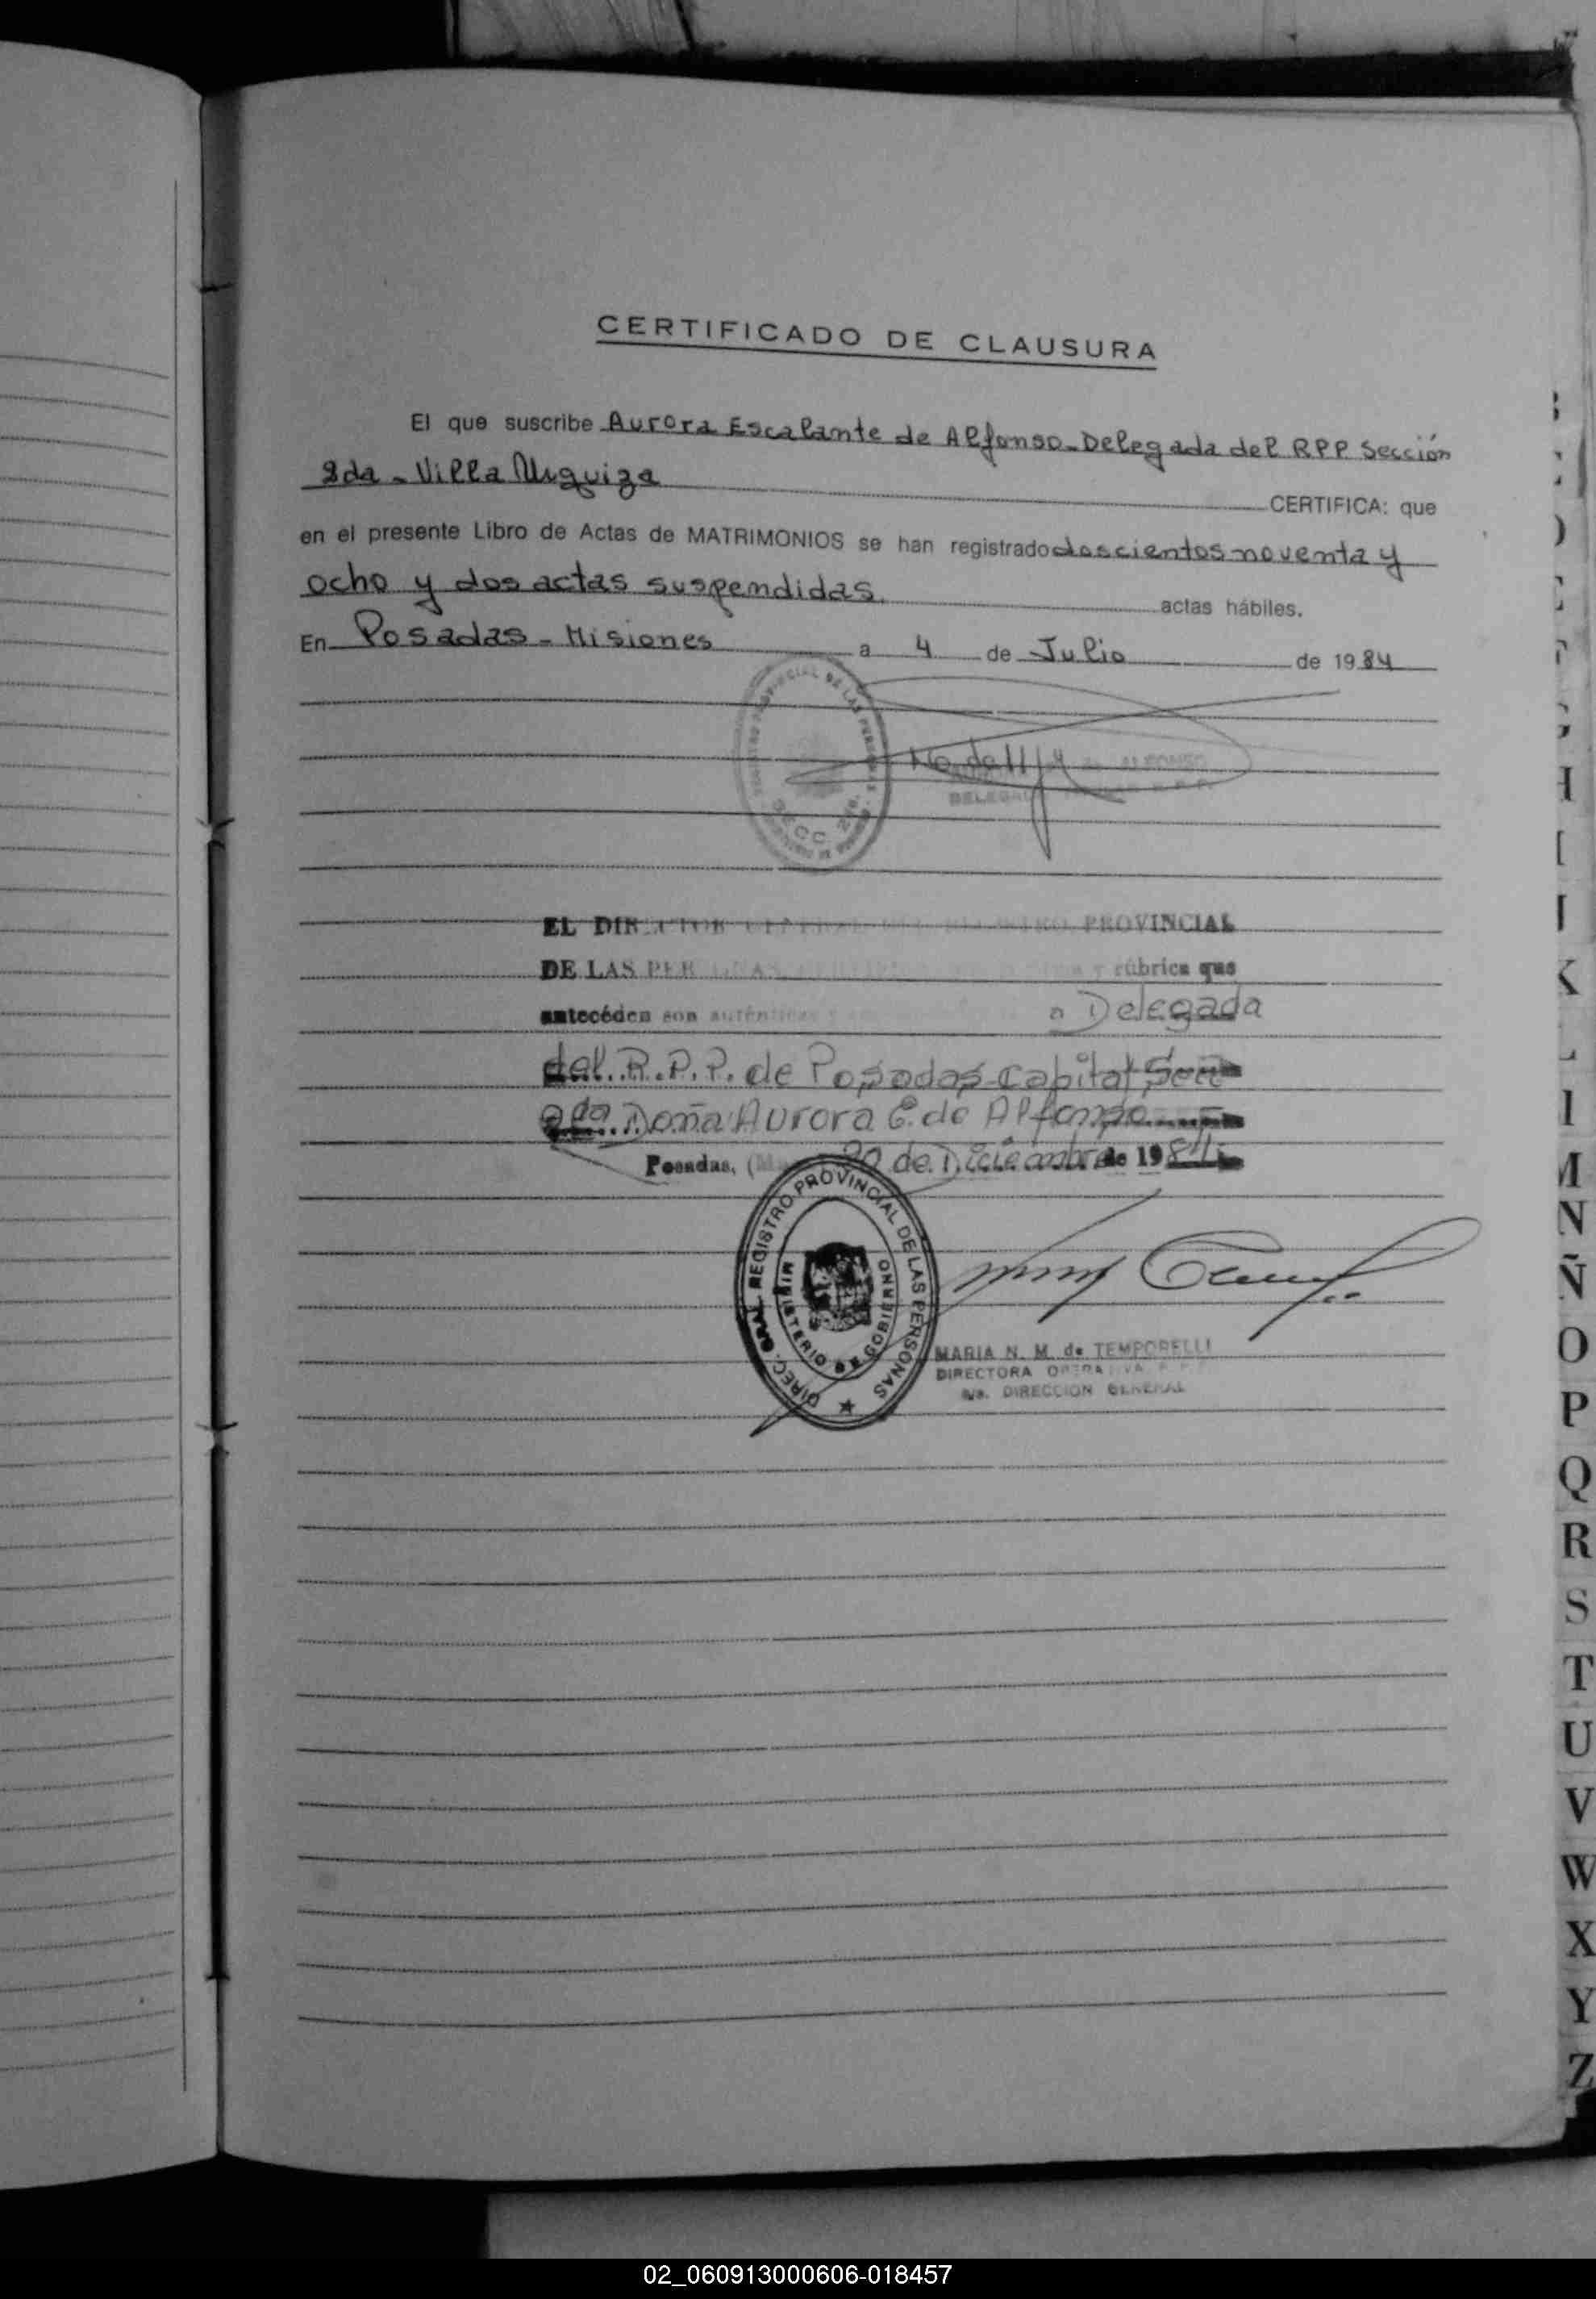 CERTIFICADO DE CLAUSURA
El que suscribe Aurora Escalante de Alfonso-Delegada del RPP Sección
2da - Villa Urquiza CERTIFICA: que
en el presente Libro de Actas de MATRIMONIOS se han registrado doscientos noventa y
ocho y dos actas suspendidas. actas hábiles.
En Posadas - Misiones a 4 de Julio de 1984
SECC. 2da.
ALFONSO
EL DIRECTOR GENERAL DEL REGISTRO PROVINCIAL
DE LAS PERSONAS, rúbrica que
anteceden son auténticas
Delegada
del R.P.P. de Posadas-Capital
2da Doña Aurora E. de Alfonso
Posadas, 20 de Diciembre de 1984
DIREC. GRAL. REGISTRO PROVINCIAL DE LAS PERSONAS
MINISTERIO DE GOBIERNO
MARIA N. M. de TEMPORELLI
DIRECTORA OPERATIVA
a/c. DIRECCION GENERAL
I
K
L
M
N
Ñ
O
P
Q
R
S
T
U
V
W
X
Y
Z
02_060913000606-018457